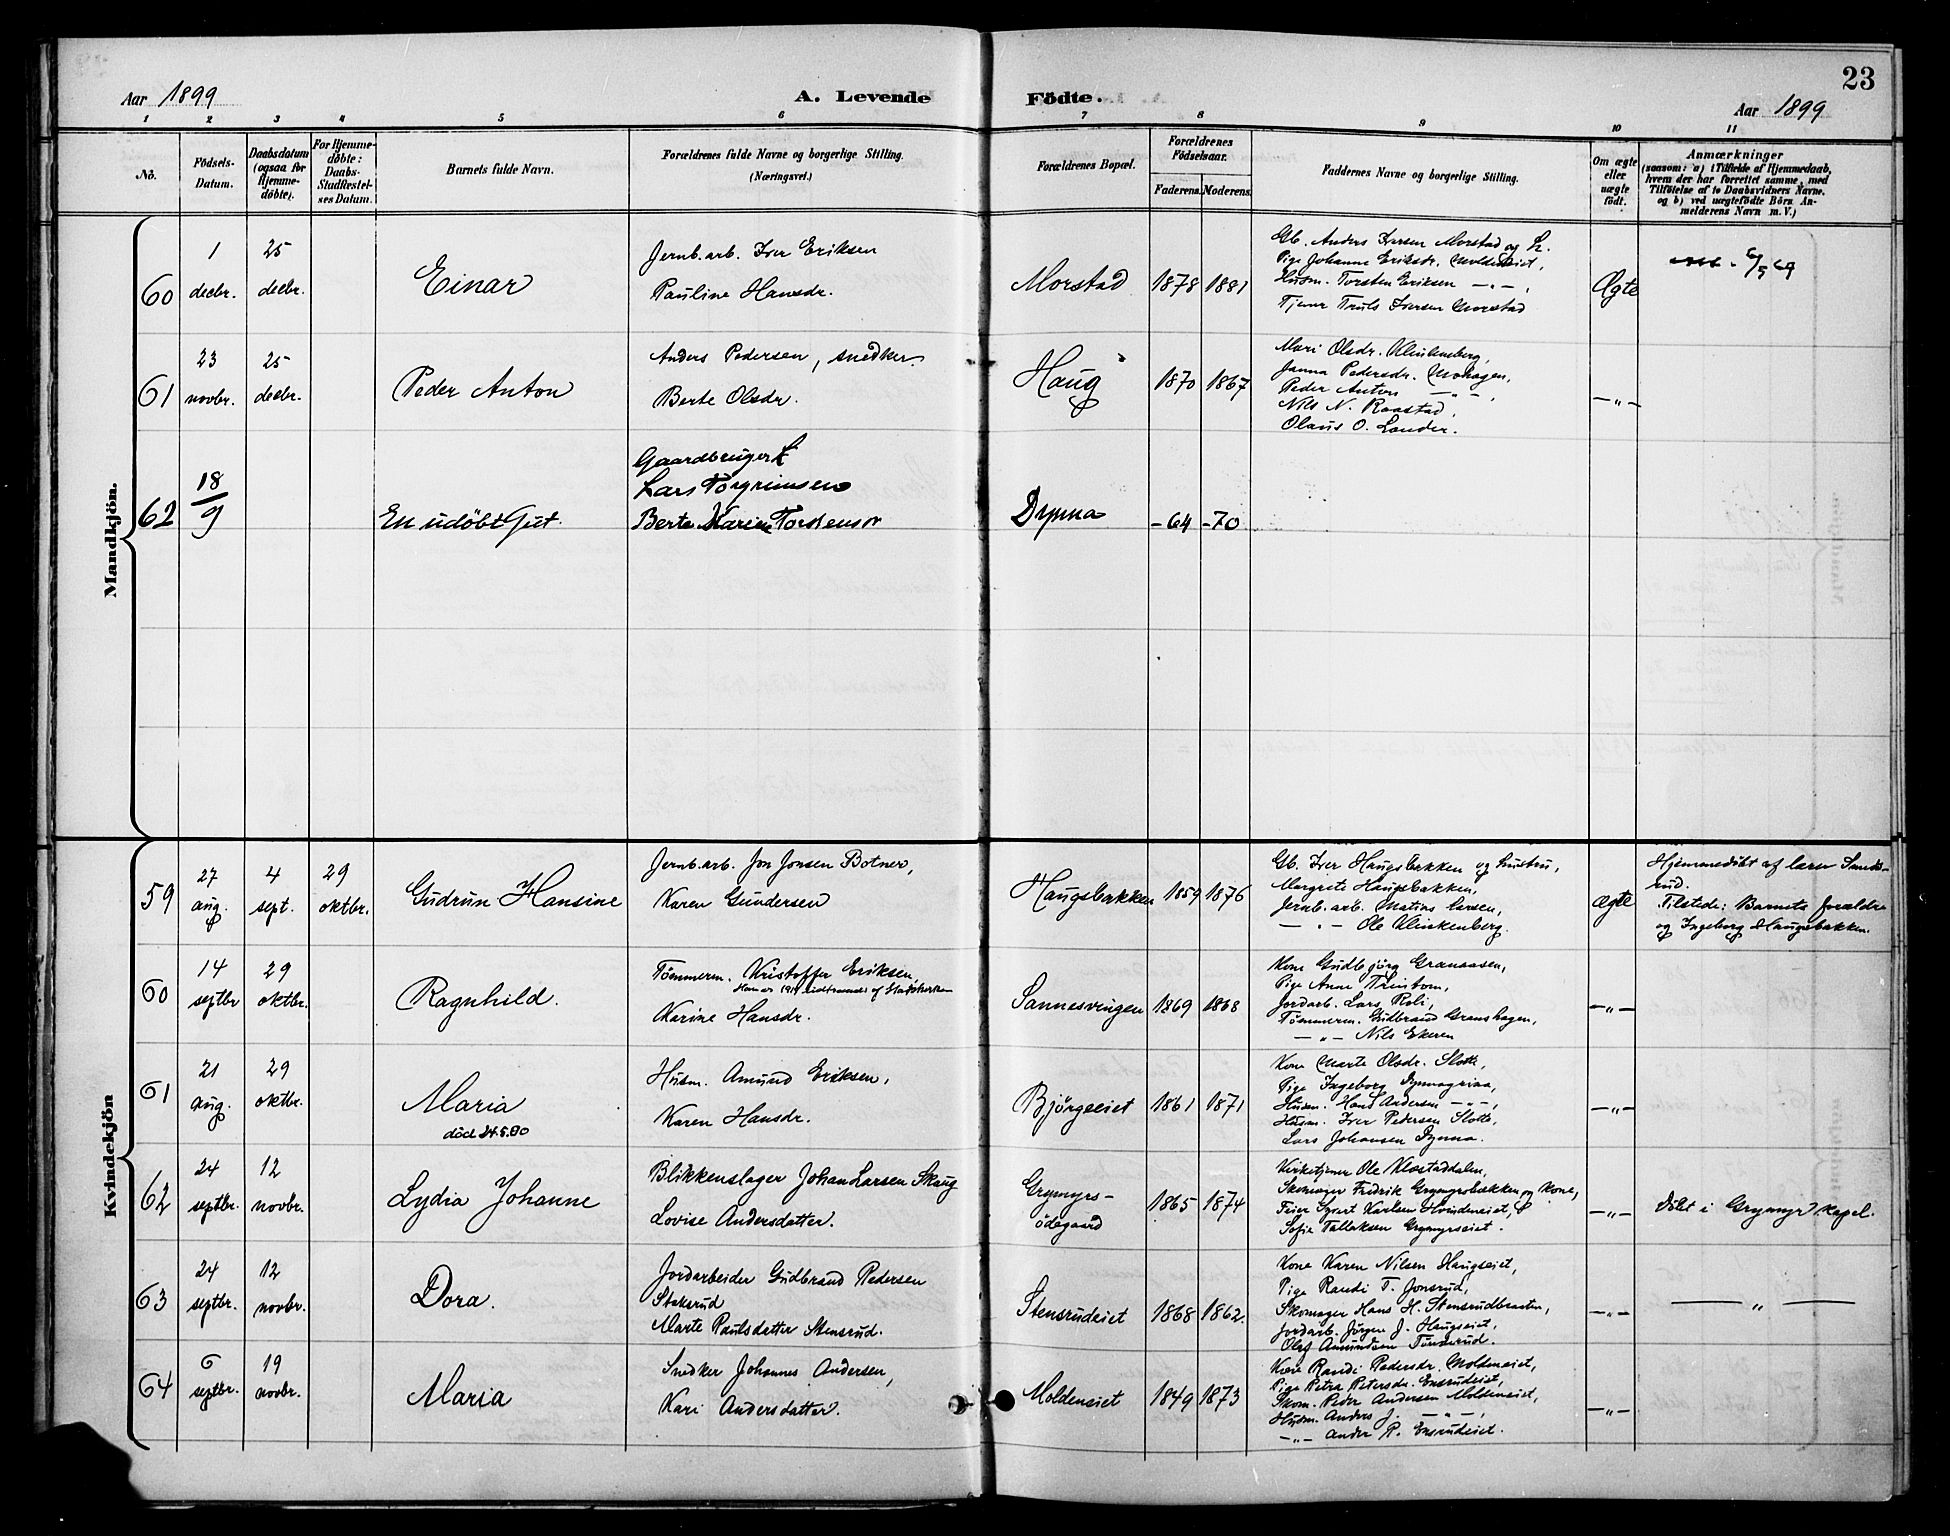 23
Aar 1899
A. Levende Födte.
Aar 1899
1 2 3 4 5 6 7 8 9 10 11
No.
Födsels-Datum.
Daabsdatum (ogsaa for Hjemme-døbte).
For Hjemme-døbte: Daabs-Stadfestel-ses Datum.
Barnets fulde Navn.
Forældrenes fulde Navne og borgerlige Stilling.
(Næringsvei.)
Forældrenes Bopæl.
Forældrenes Födselsaar.
Faderens. Moderens.
Faddernes Navne og borgerlige Stilling.
Om ægte eller uægte født.
Anmærkninger
(saasom: a) i Tilfælde af Hjemmedaab,
hvem der har forrettet samme, med
Tilføielse af to Daabsvidners Navne,
og b) ved uægtefødte Börn An-
melderens Navn m. V.)
Mandkjön.
60
1 decbr.
25 decbr.
Einar
Jernb.arb. Iver Eriksen
Pauline Hansdr.
Morstad
1878 1881
Gb. Anders Iversen Morstad og
Pige Johanne Eriksdr. Moldeneiet,
Husm. Torsten Eriksen — " — ,
Tjener Truls Iversen Morstad
Ægte
61
23 novbr.
25 decbr.
Peder Anton
Anders Pedersen, snedker
Berte Olsdr.
Haug
1870 1867
Mari Olsdr. Klinkenberg,
Janna Pedersdr. Mohagen,
Peder Anton — " — ,
Nils N. Raastad,
Olaus O. Lander.
— " —
62
18/9
En udöbt Gut.
Gaardbruger
Lars Torgrimsen
Berte Karine Torstensdr
Dynna
- 64 - 70
Kvindekjön
59
27 aug.
4 sept.
29 oktbr.
Gudrun Hansine
Jernb.arb. Jon Jonsen Botner,
Karen Gundersen
Haugsbakken
1859 1876
Gb. Iver Haugsbakken og hustru,
Margrete Haugsbakken,
Jernb.arb. Matias Larsen,
— " — Ole Klinkenberg.
Ægte
Hjemmedöbt af lærer Sands-
rud.
Tilstede: Barnets forældre
og Ingeborg Haugsbakken.
60
14 septbr
29 oktbr.
Ragnhild.
Tömmerm. Kristoffer Eriksen,
Karine Hansdr.
Sannesvingen
1869 1868
Kone Gudbjörg Granaasen,
Pige Anne Trintom,
Jordarb. Lars Roli,
Tömmerm. Gudbrand Granshagen,
— " — Nils Ekeren
— " —
61
21 aug.
29 oktbr.
Maria
död 24.5.80
Husm. Amund Eriksen,
Karen Hansdr.
Bjørgeeiet
1861 1871
Kone Marte Olsdr. Slotte,
Pige Ingeborg
Husm. Hans Andersen — " — ,
Husm. Iver Pedersen Slotte,
Lars Johansen Dynna.
— " —
62
24 septbr.
12 novbr.
Lydia Johanne
Blikkenslager Johan Larsen Skaug
Lovise Andersdatter.
Grymyrs-
ödegaard
1865 1874
Kirketjener Ole Klæstaddalen,
Skomager Fredrik Grymyrsbakken og kone,
Feier Syvert Karlsen Hvindeneiet,
Sofie Tallaksen Grymyrseiet.
— " —
Döbt i Grymyr kapel.
63
24 septbr.
12 novbr.
Dora.
Jordarbeider Gudbrand Pedersen
Staksrud
Marte Paulsdatter Stensrud.
Stensrudeiet
1868 1862.
Kone Karen Nilsen Haugseiet,
Pige Randi T. Jonsrud,
Skomager Hans H. Stensrudbraaten,
Jordarb. Jörgen J. Haugseiet,
Olaf Amundsen Tönsrud.
— " —
— " —
64
6 septbr.
19 novbr.
Maria
Snedker Johannes Andersen,
Kari Andersdatter.
Moldeneiet
1849 1873
Kone Randi Pedersdr. Moldeneiet,
Pige Petra Petersdr. Ensrudeiet,
Skom. Peder Andersen Moldeneiet,
Husm. Anders J. — " — ,
— " — Ander P. Ensrudeiet.
— " —